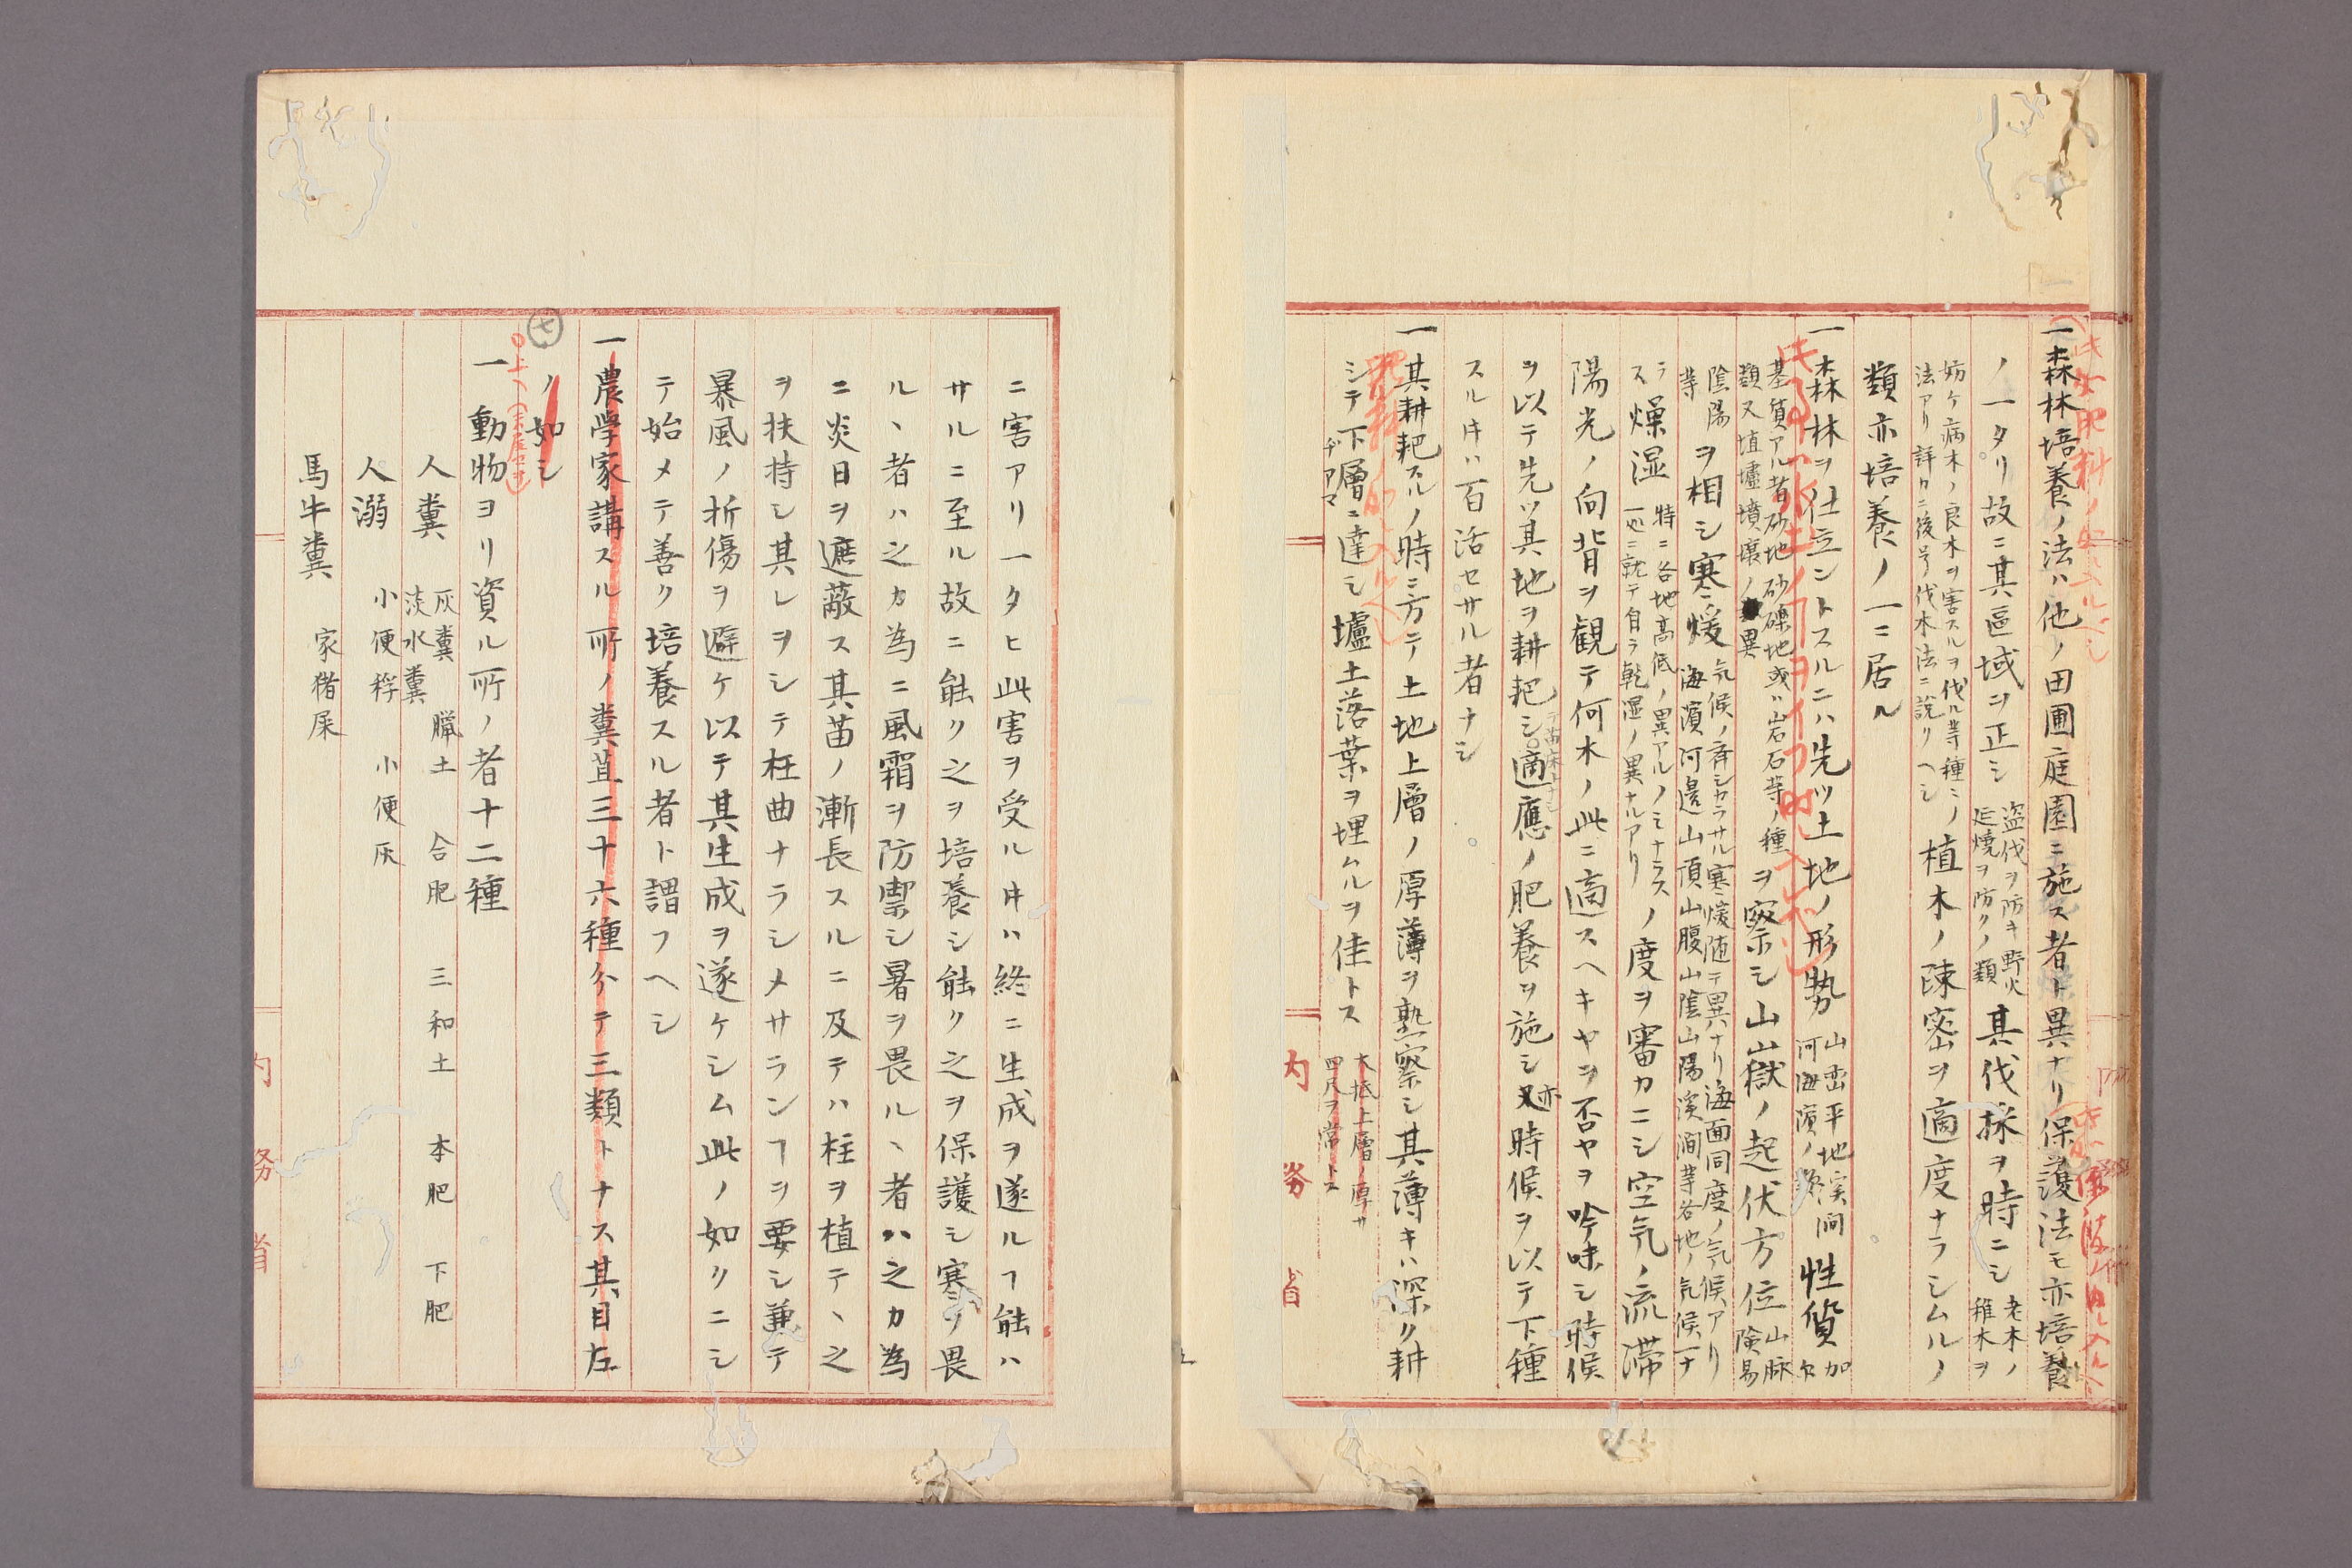 一森林培養ノ法ハ他ノ田圃庭園ニ施ス者ト異ナリ保護法モ亦培養
ノ一タリ故ニ其區域ヲ正シ盗伐ヲ防キ野火
延燒ヲ防クノ類其伐採ヲ時ニシ老木ノ
稚木ヲ
妨ケ病木ノ良木ヲ害スルヲ伐ル等種〻ノ
法アリ詳カニ後号伐木法ニ説リヘシ植木ノ疎密ヲ適度ナラシムルノ
類亦培養ノ一ニ居ル
一森林ヲ仕立ントスルニハ先ツ土地ノ形勢山巒平地溪澗
河海濱ノ類性質加
尓
基質アル者砂地砂礫地或ハ岩石等ノ種
類又埴壚墳壤ノ異ヲ察シ山嶽ノ起伏方位山脉
險易
陰陽
等ヲ相シ寒煖気候ノ斉シカラサル寒煖随テ異ナリ海面同度ノ気候アリ
海濱河邊山頂山腹山陰山陽溪澗等各地ノ気候一ナ
ラ
ス燥湿特ニ各地高低ノ異アルノミナラス
一処ニ就テ自ラ乾湿ノ異ナルアリノ度ヲ審カニシ空気ノ流滞
陽光ノ向背ヲ観テ何木ノ此ニ適スヘキヤヲ否ヤヲ吟味シ時候
ヲ以テ先ツ其地ヲ耕耙シ適應ノ肥養ヲ施シ亦時候ヲ以テ下種
スルキハ百活セサル者ナシ
一其耕耙スルノ時ニ方テ土地上層ノ厚薄ヲ熟察シ其薄キハ深ク耕
シテ下層ニ達シ壚土落葉ヲ埋ムルヲ佳トス大抵上層ノ厚サ
四尺ヲ常トス
内務省
ニ害アリ一タヒ此害ヲ受ルキハ終ニ生成ヲ遂ルヿ能ハ
サルニ至ル故ニ能ク之ヲ培養シ能ク之ヲ保護シ寒ヲ畏
ルヽ者ハ之カ為ニ風霜ヲ防禦シ暑ヲ畏ルヽ者ハ之カ為
ニ炎日ヲ遮蔽ス其苗ノ漸長スルニ及テハ柱ヲ植テヽ之
ヲ扶持シ其レヲシテ枉曲ナラシメサランヿヲ要シ兼テ
暴風ノ折傷ヲ避ケ以テ其生成ヲ遂ケシム此ノ如クニシ
テ始メテ善ク培養スル者ト謂フヘシ
一農學家講スル所ノ糞苴三十六種分テ三類トナス其目左
ノ如シ
七
一動物ヨリ資ル所ノ者十二種
人糞 灰糞 臘土 合肥 三和土 本肥 下肥
淡水糞
人溺 小便粰 小便灰
馬牛糞 家猪屎
内務省